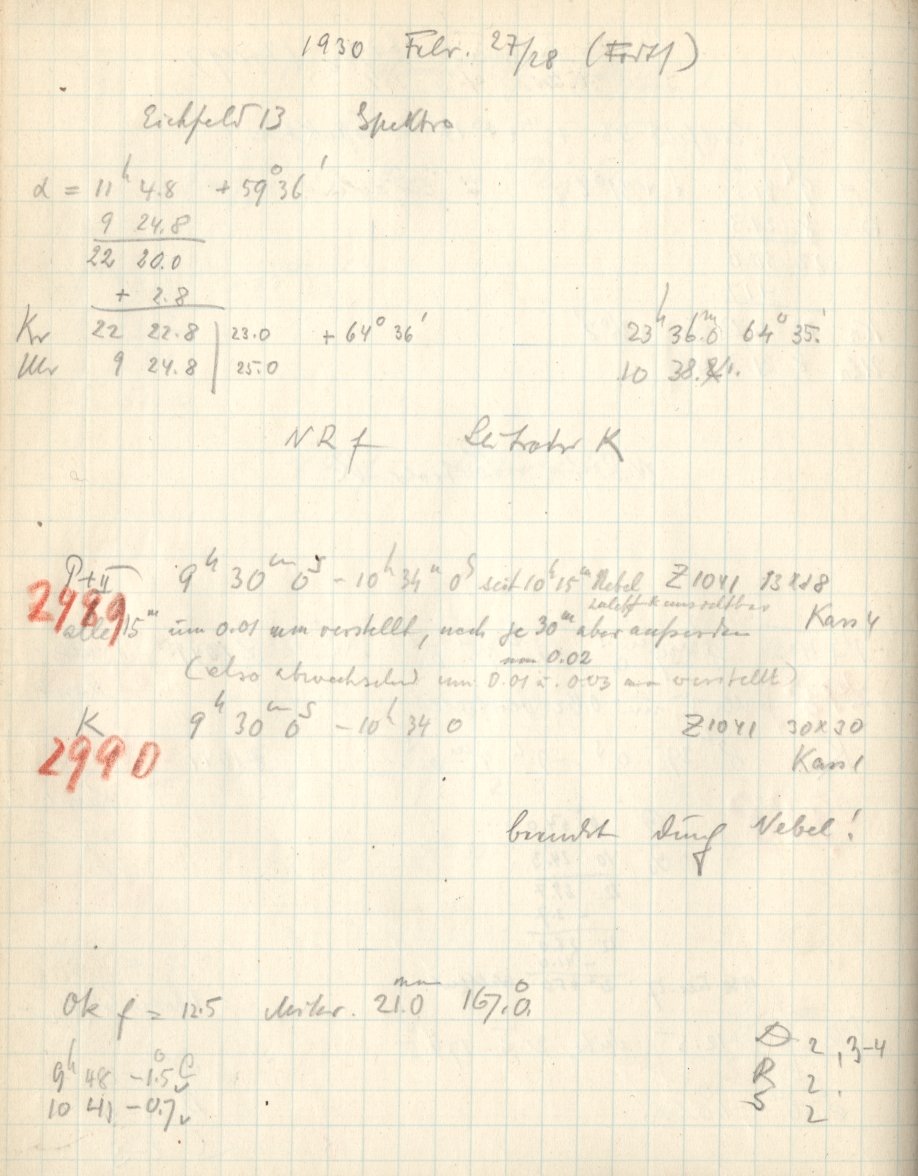 1930 Febr. 27/28 (Forts)
Eichfeld 13 Spektro
α = 11h 4.8 +59° 36'
9 24.8
22 20.0
+ 2.8
Kr 22 22.8 | 23.0 +64° 36' 23h 36.m0 64° 35.'
Uhr 9 24.8 | 25.0 10 38.
NRf Leitrohr K
P+II 9h 30m 0s – 10h 34m 0s seit 10h 15m Nebel Z1041 13×18
2989 zuletzt * unsichtbar
alle 15m um 0.01 mm verstellt, nach je 30m aber außerdem Kass 4
um 0.02
(also abwechselnd um 0.01 u. 0.03 mm verstellt)
K 9h 30m 0s – 10h 34 0 Z1041 30×30
2990 Kass 1
beendet durch Nebel!
Ok f = 12.5 Mikr. 21.0mm 167.°0
D 2, 3-4
9h 48 –1.°5 C R 2
10 41 –0.7 S 2